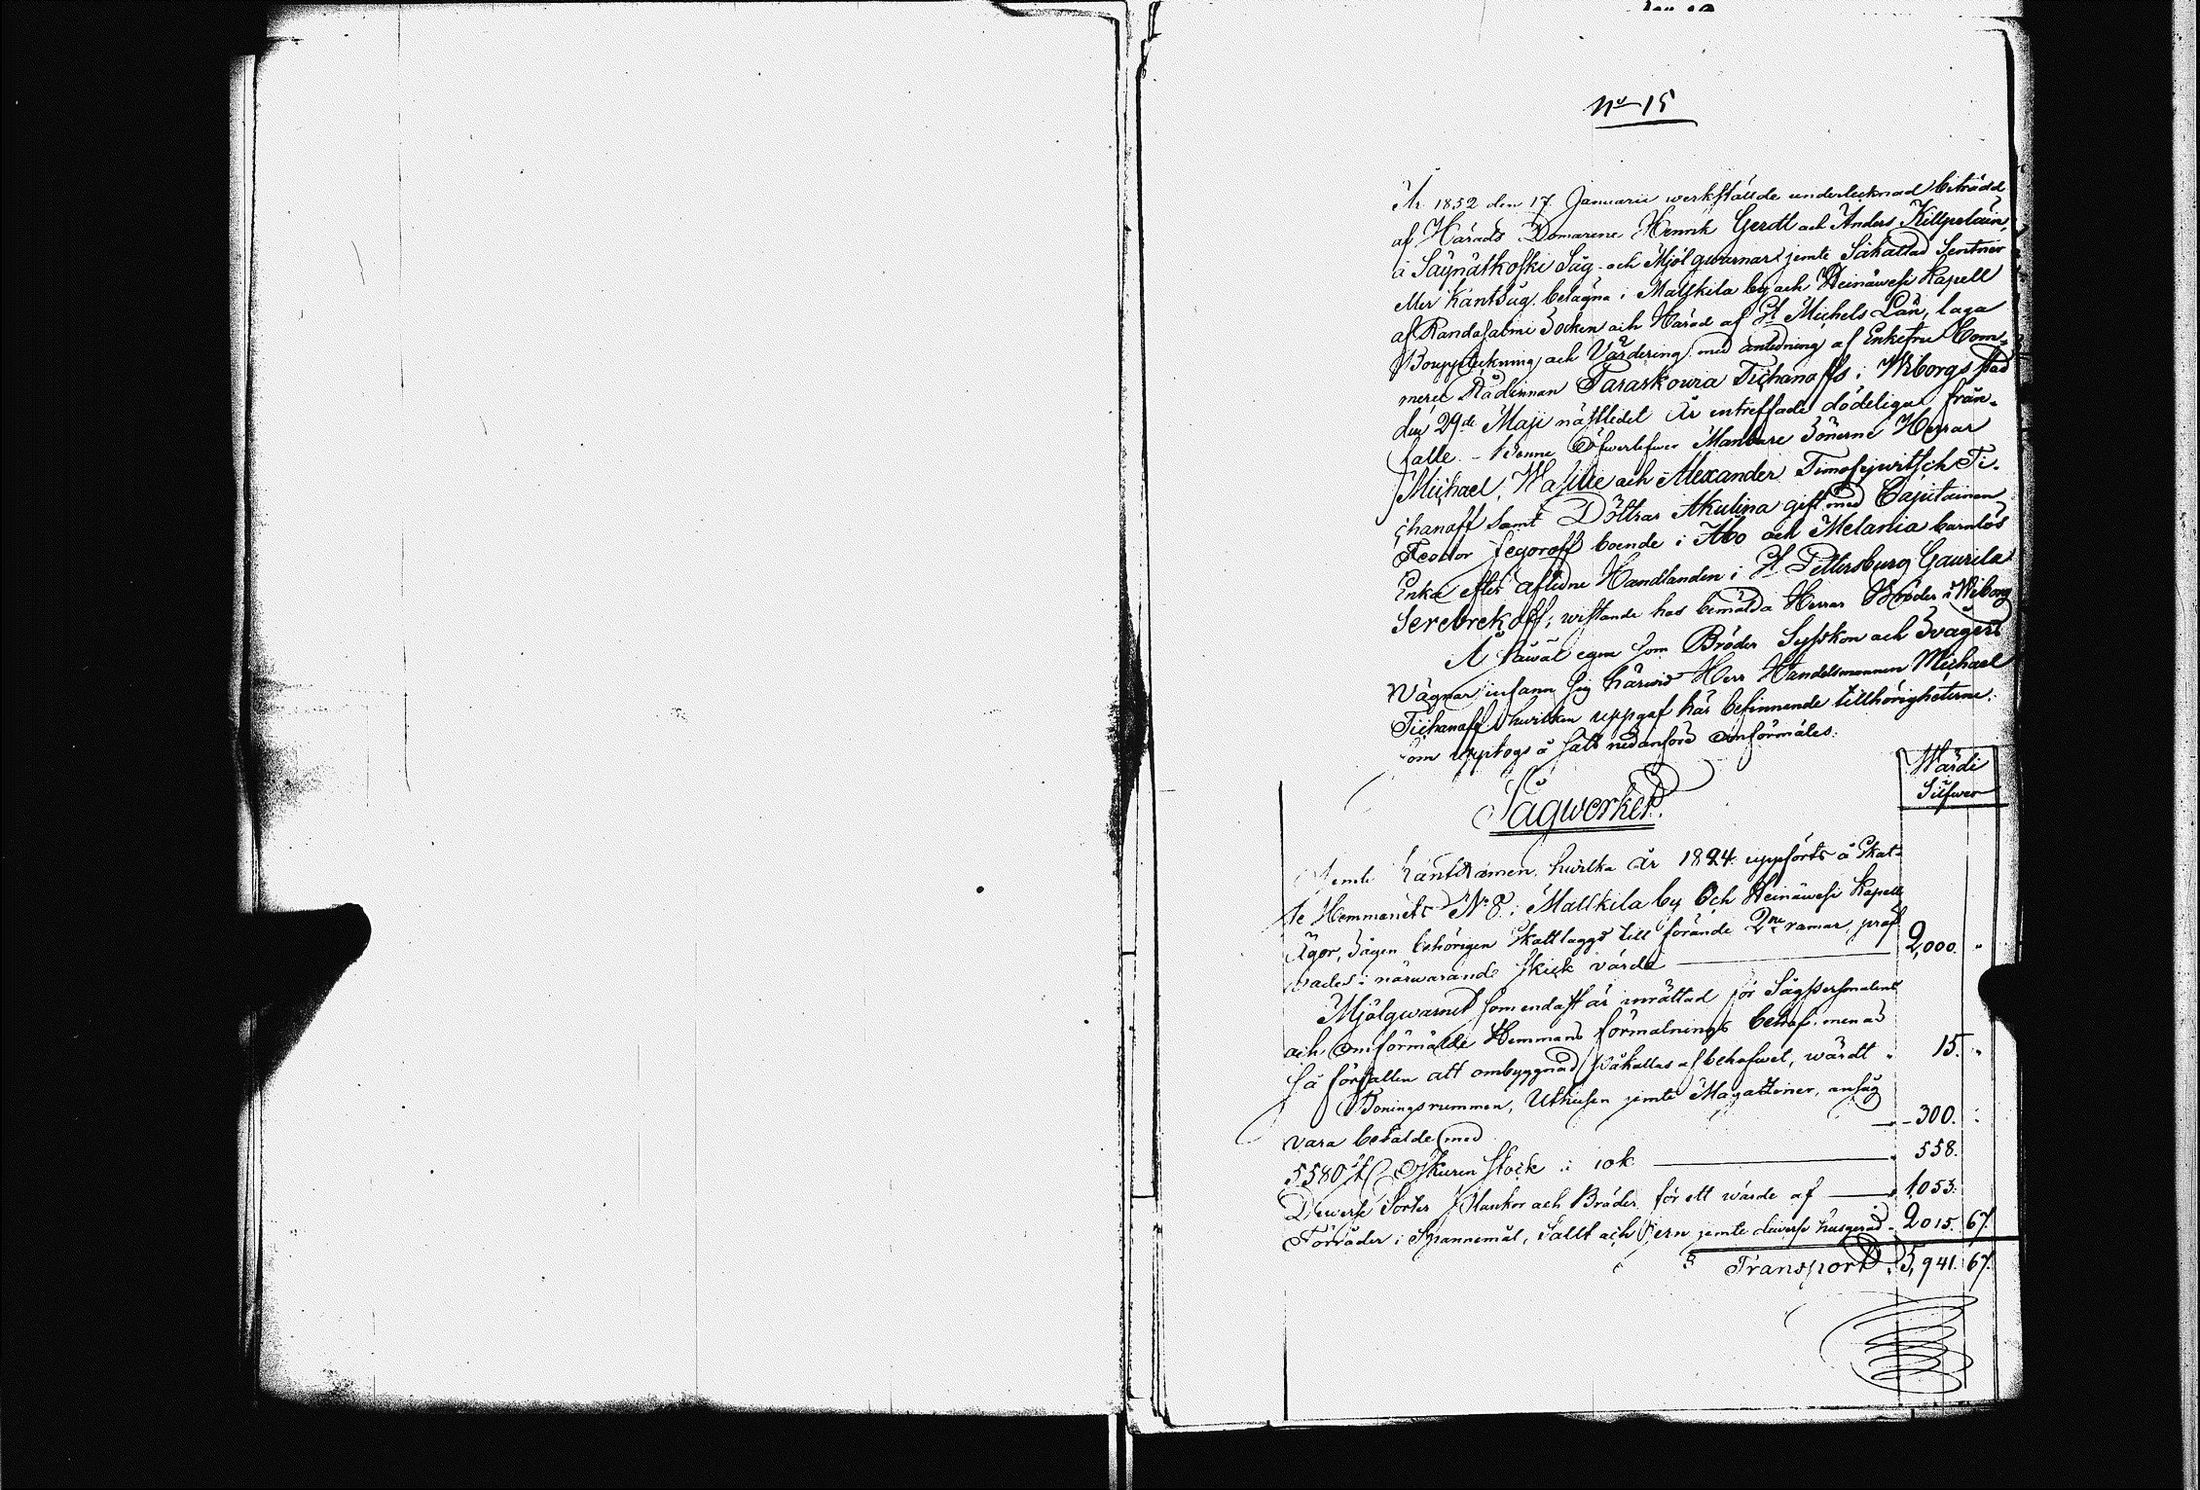 No 15
År 1852 den 17 Januarii werkstälde undertecknad biträdd
af Härads Domarene Henrik Gerdt och Anders Killpeläin,
å Säynätkoski Såg- och Mjölqwarnar jemte Såkallad
eller Kantsåg belägna i Malkkila by och Heinäwesi Kapell
af Randasalmi Socken och Härad af St Michels Län, laga
Bouppteckning och Värdering med anledning af Enkefru Com-
merce Rådinnan Taraskowia Tichanoffs i Wiborgs stad
den 29de Maji nästledet År intreffade dödeliga från-
falle. - Denne Öfwerlefwes Manbare Sönerne Herrar
Michael, Wasilie och Alexander Timofejwitsch Ti-
chanoff samt Döttrar Akulina gift med Capitainen
Feodor Jegoroff boende i Åbo och Melania barnlös
Enka efter aflidne Handlanden i St Pettersburg Gaurila
Serebrekoff, wistande hos bemälda Herrar Bröder i Wiborg
Å såwäl egne som Bröders Syskon och Svågers
Vägnar infann sig härwid Herr Handelsmannen Michael
Tichanoff hwilken uppgaf här befinnande tillhörigheterne
som upptogs å sätt nedanföre omförmäles.
Wärde
Silfwer
Sågwerket.
Jemte Kantramen, hwilka År 1824 uppförts å Skat-
te Hemmanets No 8 i Malkkila by Och Heinäwesi Kapell
Ägor, Sågen behörigen Skattlaggd till förande 2ne ramar, pröf-
vades i närwarande skick värde 2,000. "
Mjölqwarnet som endast är inrättad för Sågpersonalens
och omförmälde Hemmans förmalnings behof, men är
så förfallen att ombyggnad påkallas af behofwet, wärdt " 15. "
Boningsrummen, Uthusen jemte Magaziner, ansåg
vara befälde med 300. :
5580 st Oskuren Stock à 10 k 558.
Diwerse Sorter Plankor och Bräder för ett wärde af 1,053.
Förråder i Spannemål, Sallt och Jern jemte diwerse husgeråd 2015. 67.
Transport 5,941. 67.